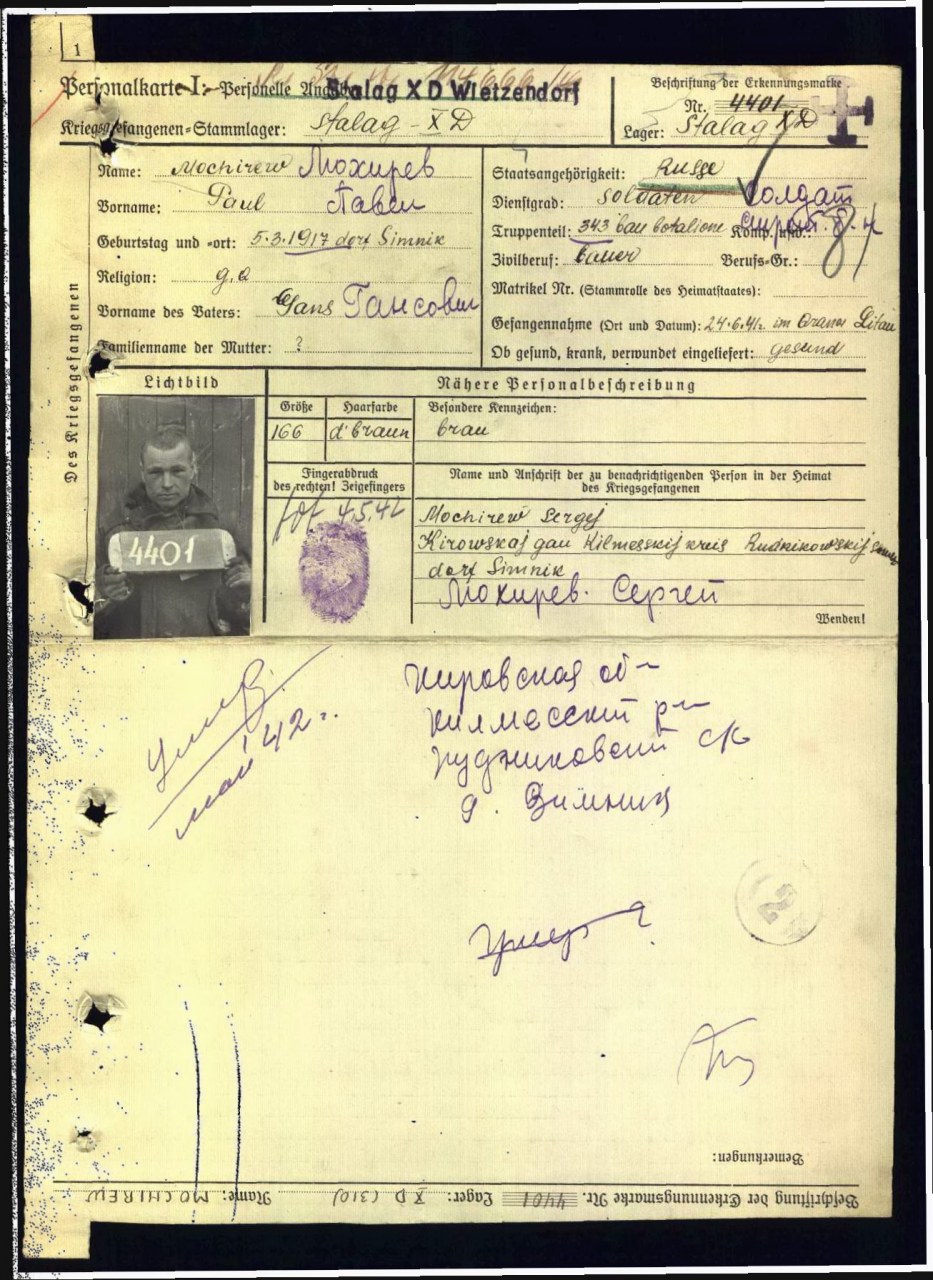 1
Personalkarte I: Personelle Angaben
Stalag X D Wietzendorf
Kriegsgefangenen-Stammlager: Stalag - X D
Beschriftung der Erkennungsmarke
Nr. 4401
Lager: Stalag X D
Des Kriegsgefangenen
Name: Mochirew Мохирев
Vorname: Paul Павел
Geburtstag und -ort: 5.3.1917 dorf Simnik
Religion: g.o
Vorname des Vaters: Gans Гансович
Familienname der Mutter: ?
Staatsangehörigkeit: Russe
Dienstgrad: Soldaten Солдат
Truppenteil: 343 bau batalione Komp. usw.: строит. б-н
Zivilberuf: Bauer Berufs-Gr.:
Matrikel Nr. (Stammrolle des Heimatstaates):
Gefangennahme (Ort und Datum): 24.6.41. im Litau
Ob gesund, krank, verwundet eingeliefert: gesund
Lichtbild
4401
Nähere Personalbeschreibung
Größe Haarfarbe Besondere Kennzeichen:
166 d'braun brau
Fingerabdruck
des rechten! Zeigefingers
4.5.42
Name und Anschrift der zu benachrichtigenden Person in der Heimat
des Kriegsgefangenen
Mochirew Sergej
Kirowskaj gau Kilmesskij kreis Rudnikowskij
dorf Simnik
Мохирев. Сергей
Wenden!
Кировская об-
Килмесский р-н
Рудниковский с/с
д. Зимник
умер
май 42 г.
умер
2
Bemerkungen:
Beschriftung der Erkennungsmarke Nr. 4401 Lager: X D (310) Name: MOCHIREW